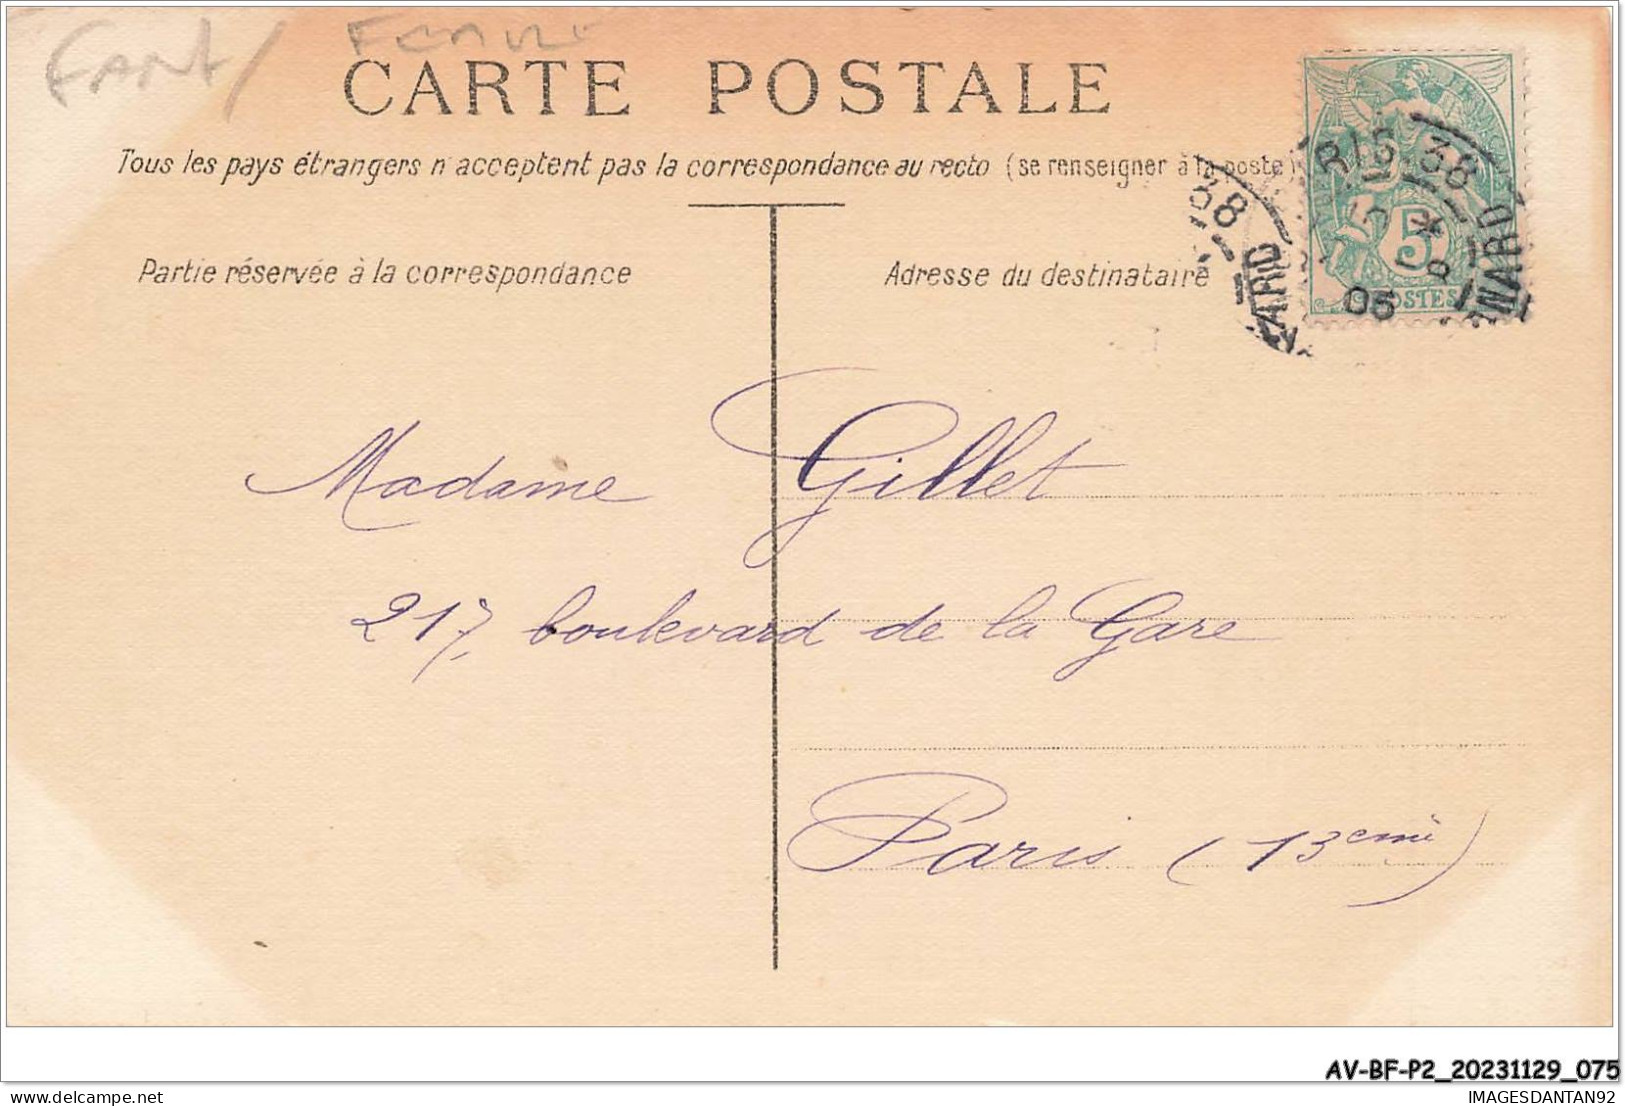 Fant/ Femme
CARTE POSTALE
Tous les pays étrangers n'acceptent pas la correspondance au recto (se renseigner à la poste)
Partie réservée à la correspondance
Adresse du destinataire
38
5
POSTES
38
06
Madame Gillet
217, boulevard de la Gare
Paris (13eme)
AV-BF-P2_20231129_075
IMAGESDANTAN92